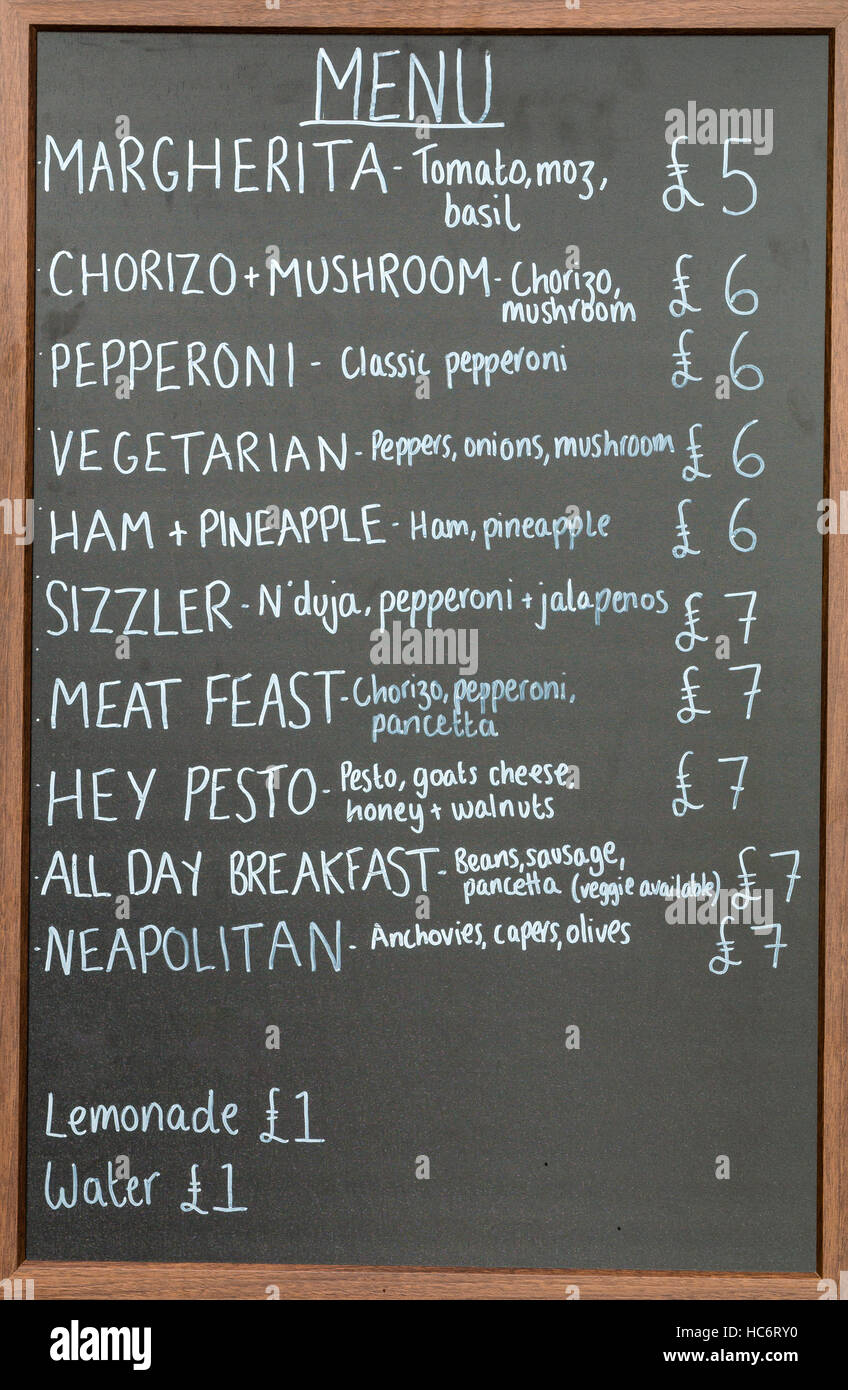 MENU
MARGHERITA - Tomato, moz, £5
basil
CHORIZO + MUSHROOM - Chorizo, £6
mushroom
PEPPERONI - Classic pepperoni £6
VEGETARIAN - Peppers, onions, mushroom £6
HAM + PINEAPPLE - Ham, pineapple £6
SIZZLER - N'duja, pepperoni + jalapenos £7
MEAT FEAST - Chorizo, pepperoni, £7
pancetta
HEY PESTO - Pesto, goats cheese, £7
honey + walnuts
ALL DAY BREAKFAST - Beans, sausage, £7
pancetta (veggie available)
NEAPOLITAN - Anchovies, capers, olives £7
Lemonade £1
Water £1
alamy
alamy stock photo
HC6RY0
www.alamy.com